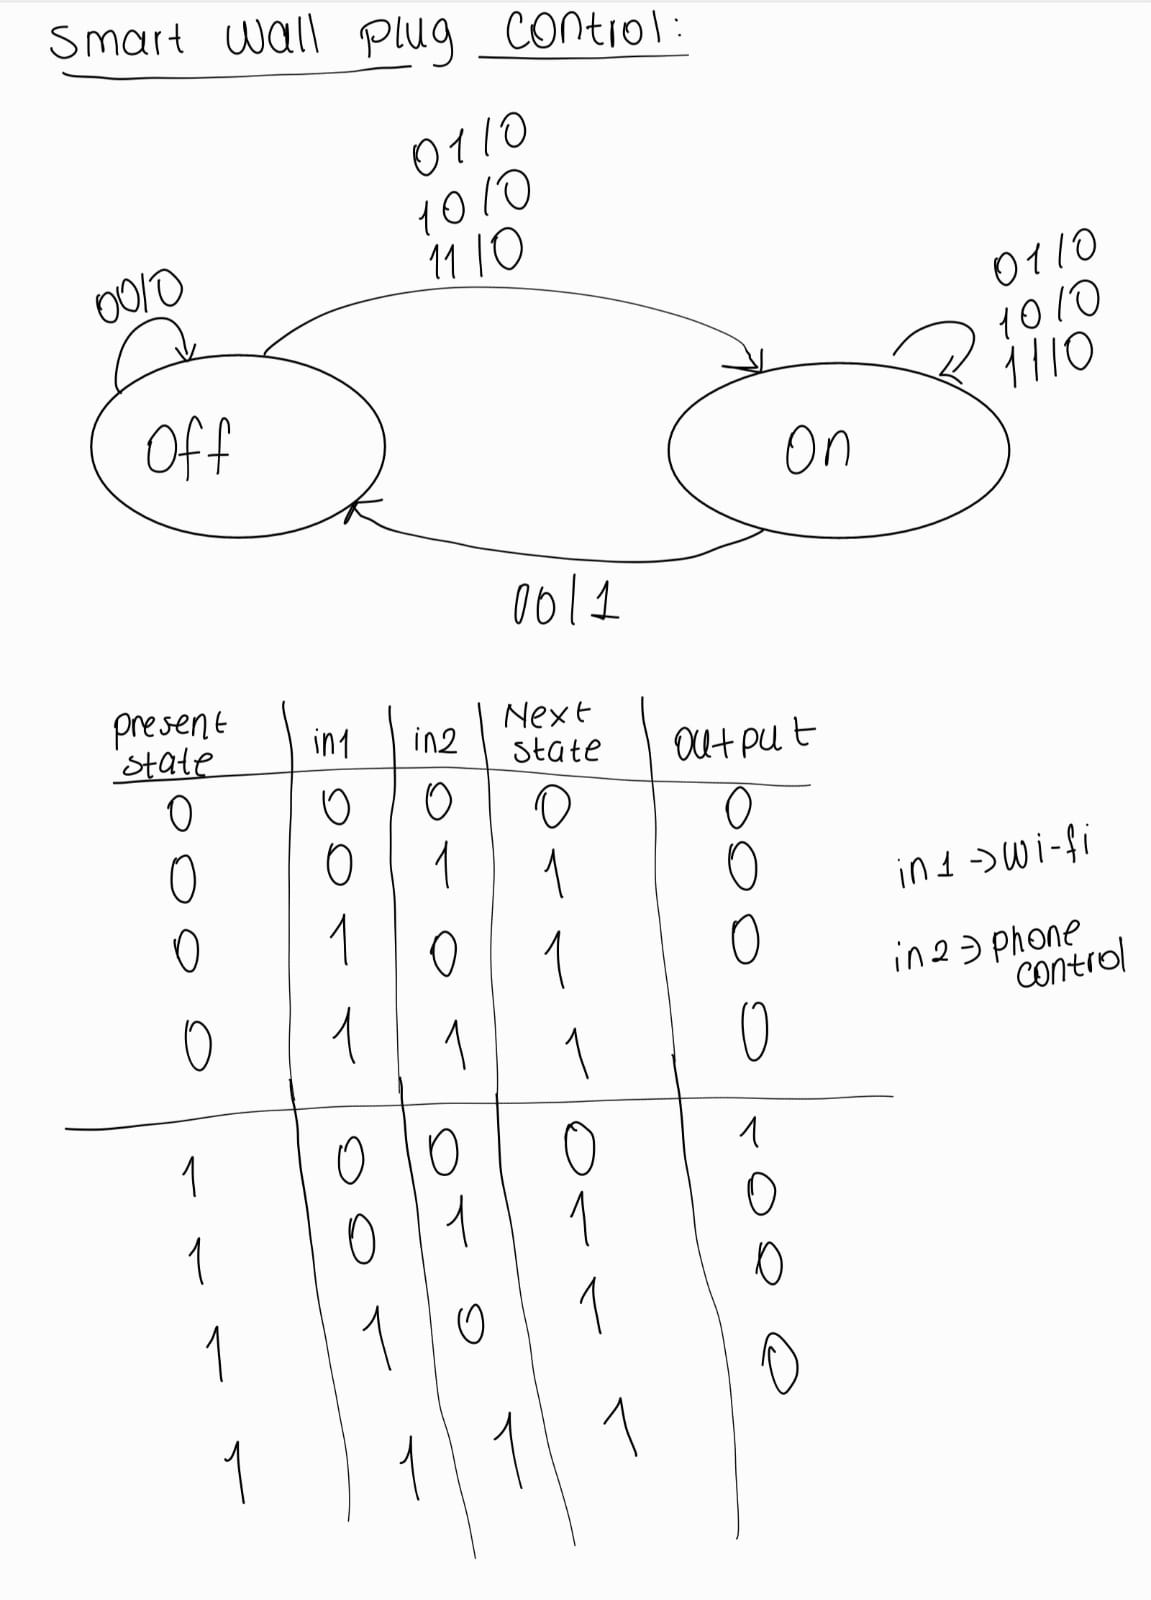 Smart wall plug control:
01/0
10/0
11/0
00/0
01/0
10/0
11/0
Off
On
00/1
present state | in1 | in2 | Next state | output
0 0 0 0 0
0 0 1 1 0
0 1 0 1 0
0 1 1 1 0
1 0 0 0 1
1 0 1 1 0
1 1 0 1 0
1 1 1 1 0
in1 → wi-fi
in2 → phone
control